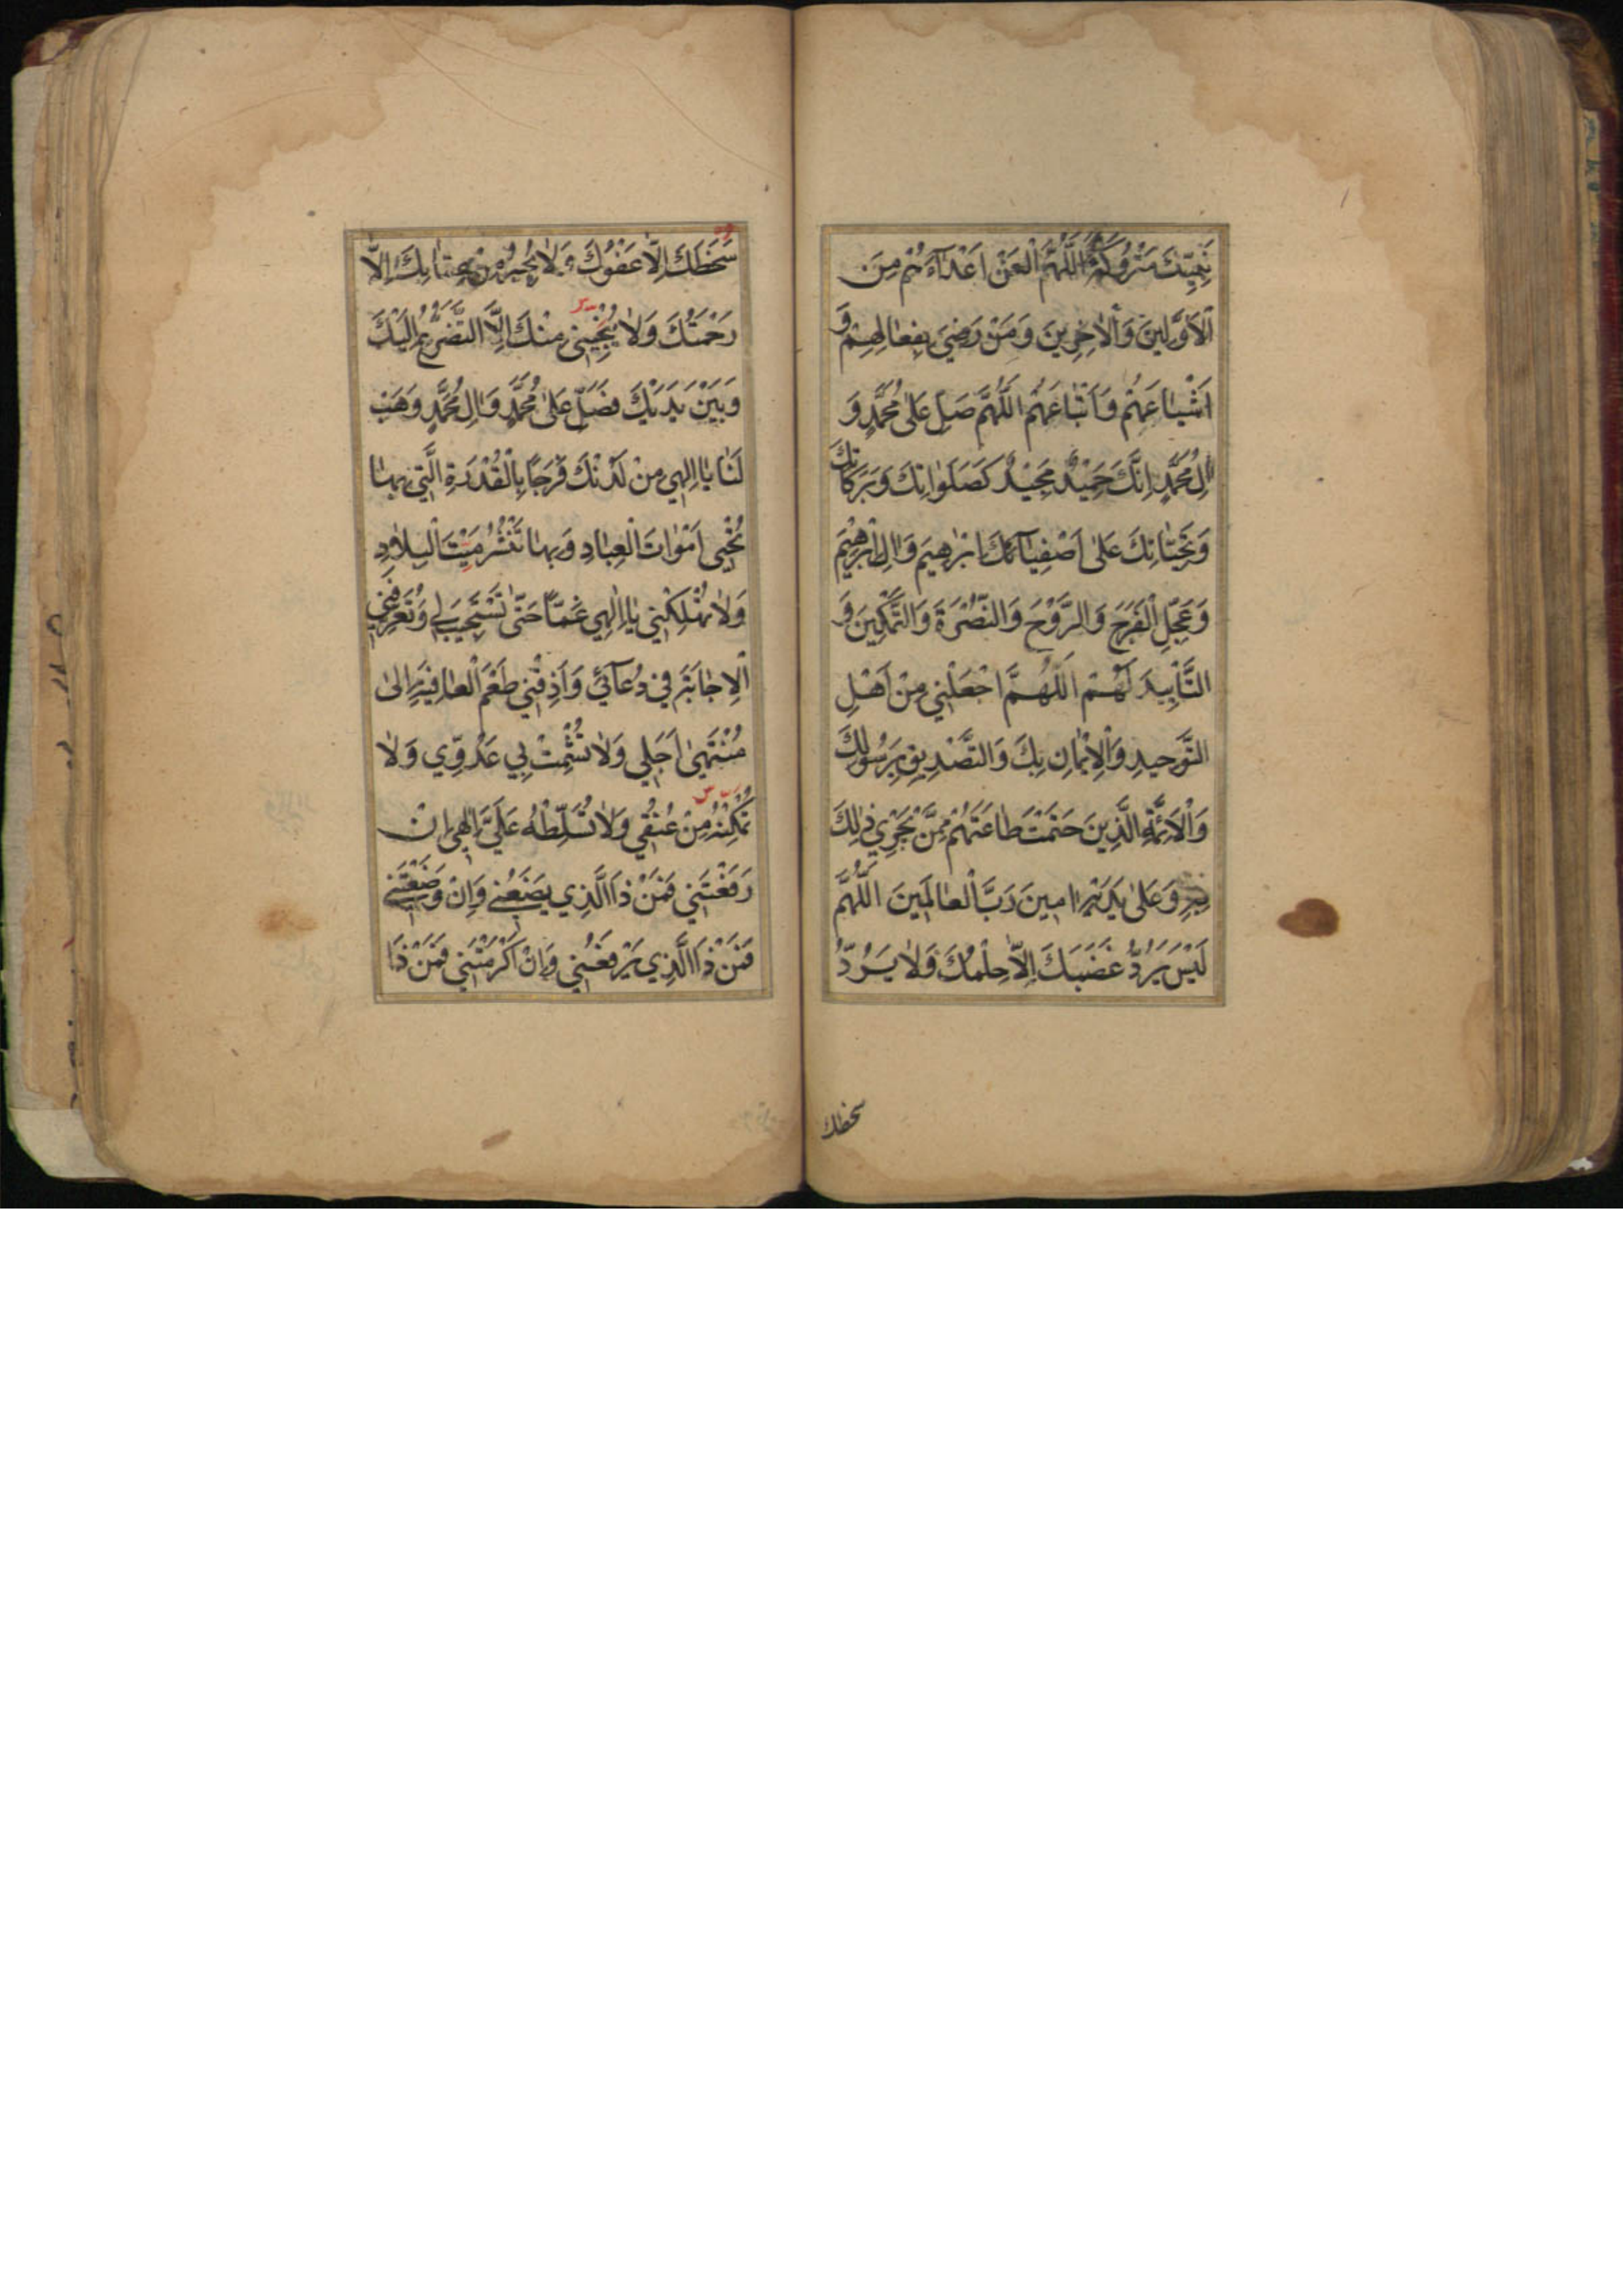 نَبِيِّكَ مَتْرُوكَةً اَللّٰهُمَّ الْعَنْ اَعْدَآءَهُمْ مِنَ
الْاَوَّلِينَ وَالْاٰخِرِينَ وَمَنْ رَضِيَ بِفِعَالِهِمْ وَ
اَشْيَاعَهُمْ وَاَتْبَاعَهُمْ اَللّٰهُمَّ صَلِّ عَلىٰ مُحَمَّدٍ وَ
اٰلِ مُحَمَّدٍ اِنَّكَ حَمِيْدٌ مَجِيْدٌ كَصَلَوَاتِكَ وَبَرَكَاتِكَ
وَتَحِيَّاتِكَ عَلىٰ اَصْفِيَآئِكَ اِبْرٰهِيمَ وَاٰلِ اِبْرٰهِيْمَ
وَعَجِّلِ الْفَرَجَ وَالرَّوْحَ وَالنُّصْرَةَ وَالتَّمْكِينَ وَ
التَّأْيِيدَ لَهُمْ اَللّٰهُمَّ اجْعَلْنِي مِنْ اَهْلِ
التَّوْحِيدِ وَالْاِيْمَانِ بِكَ وَالتَّصْدِيقِ بِرَسُولِكَ
وَالْاَئِمَّةِ الَّذِينَ حَتَمْتَ طَاعَتَهُمْ مِمَّنْ يَجْرِي ذٰلِكَ
بِهِ وَعَلىٰ يَدَيْهِ اٰمِينَ رَبَّ الْعَالَمِينَ اَللّٰهُمَّ
لَيْسَ يَرُدُّ غَضَبَكَ اِلَّا حِلْمُكَ وَلَا يَرُدُّ
سخطك
سَخَطَكَ اِلَّا عَفْوُكَ وَلَا يُجِيرُ مِنْ عِقَابِكَ اِلَّا
رَحْمَتُكَ وَلَا يُنْجِينِي مِنْكَ اِلَّا التَّضَرُّعُ اِلَيْكَ
وَبَيْنَ يَدَيْكَ فَصَلِّ عَلىٰ مُحَمَّدٍ وَاٰلِ مُحَمَّدٍ وَهَبْ
لَنَا يَا اِلٰهِي مِنْ لَدُنْكَ فَرَجًا بِالْقُدْرَةِ الَّتِي بِهَا
تُحْيِي اَمْوَاتَ الْعِبَادِ وَبِهَا تَنْشُرُ مَيْتَ الْبِلَادِ
وَلَا تُهْلِكْنِي يَا اِلٰهِي غَمًّا حَتّىٰ تَسْتَجِيبَ لِي وَتُعَرِّفَنِي
الْاِجَابَةَ فِي دُعَآئِي وَاَذِقْنِي طَعْمَ الْعَافِيَةِ اِلىٰ
مُنْتَهىٰ اَجَلِي وَلَا تُشْمِتْ بِي عَدُوِّي وَلَا
تُمَكِّنْهُ مِنْ عُنُقِي وَلَا تُسَلِّطْهُ عَلَيَّ اِلٰهِي اِنْ
رَفَعْتَنِي فَمَنْ ذَا الَّذِي يَضَعُنِي وَاِنْ وَضَعْتَنِي
فَمَنْ ذَا الَّذِي يَرْفَعُنِي وَاِنْ اَكْرَمْتَنِي فَمَنْ ذَا